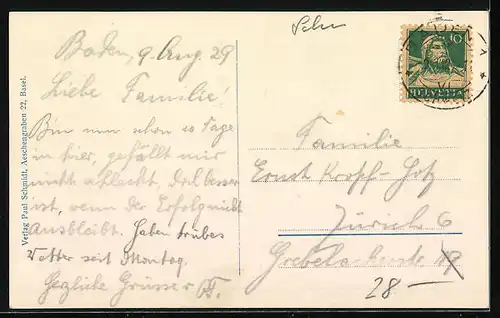 Baden, 9 Aug. 29
Liebe Familie!
Bin nun schon 10 Tage
in hier, gefällt mir
nicht schlecht, doch besser
ist, wenn der Erfolg nicht
ausbleibt. Haben trübes
Wetter seit Montag.
Herzliche Grüsse
Verlag Paul Schmidt, Aeschengraben 22, Basel.
10
HELVETIA
BADEN
Familie
Ernst Kropf-Hotz
Zürich 6
28 —